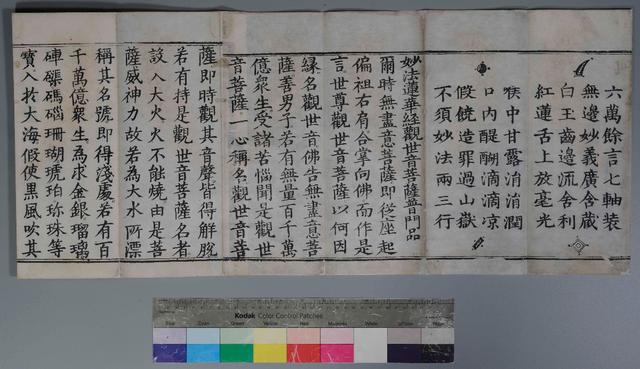 六萬餘言七軸裝
無邊妙義廣含藏
白玉齒邊流舍利
紅蓮舌上放毫光
喉中甘露涓涓潤
口內醍醐滴滴凉
假饒造罪過山嶽
不須妙法兩三行
妙法蓮華經觀世音菩薩普門品
爾時無盡意菩薩即從座起
偏袒右肩合掌向佛而作是
言世尊觀世音菩薩以何因
緣名觀世音佛告無盡意菩
薩善男子若有無量百千萬
億衆生受諸苦惱聞是觀世
音菩薩一心稱名觀世音菩
薩即時觀其音聲皆得解脫
若有持是觀世音菩薩名者
設入大火火不能燒由是菩
薩威神力故若為大水所漂
稱其名號即得淺處若有百
千萬億衆生為求金銀瑠璃
硨磲碼碯珊瑚琥珀珍珠等
寶入於大海假使黑風吹其
Kodak Color Control Patches
Blue Cyan Green Yellow Red Magenta White 3/Color Black